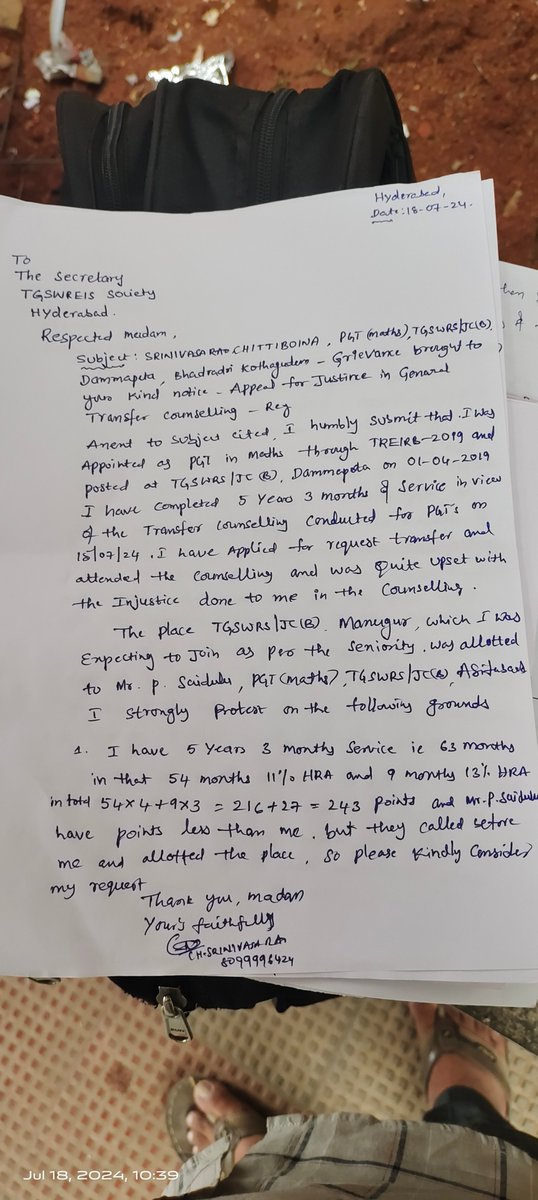 Hyderabad,
Date: 18-07-24.
To
The Secretary
TGSWREIS Society
Hyderabad.
Respected madam,
Subject: SRINIVASARAO CHITTIBOINA, PGT (maths), TGSWRS/JC(B),
Dammapeta, Bhadradri Kothagudem - Grievance brought to
your kind notice - Appeal for Justince in Genaral
Transfer counselling - Reg
Anent to subject cited, I humbly submit that I was
Appointed as PGT in Maths through TREIRB-2019 and
posted at TGSWRS/JC(B), Dammapeta on 01-04-2019
I have completed 5 Years 3 months of service in view
of the Transfer Counselling Conducted for PGTs on
15/07/24. I have Applied for request transfer and
attended the Counselling and was Quite upset with
the Injustice done to me in the Counselling.
The place TGSWRS/JC(B). Manugur, which I was
Expecting to Join as per the Seniority. was allotted
to Mr. P. Saidulu, PGT (maths), TGSWRS/JC(B),
I strongly Protest on the following grounds
1. I have 5 Years 3 months Service ie 63 months
in that 54 months 11% HRA and 9 months 13% HRA
in total 54×4+9×3 = 216+27 = 243 Points and Mr. P. Saidulu
have points less than me, but they called before
me and allotted the place, so please Kindly Consider
my request
Thank you, madam
Your's faithfully
CH.SRINIVASA RAO
8099996424
Jul 18, 2024, 10:39